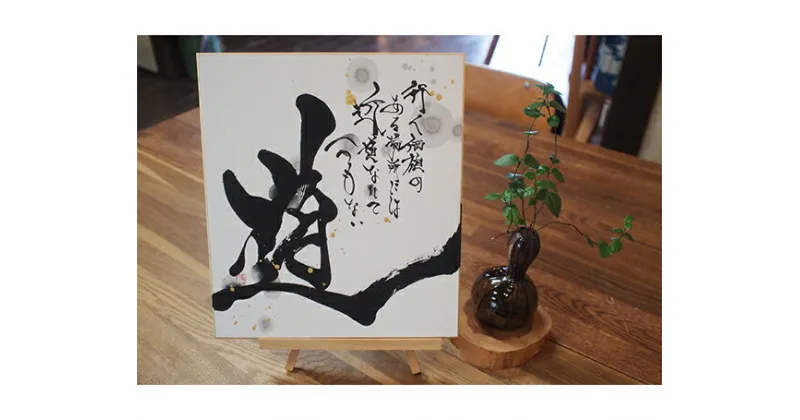 行く価値の
ある場所には
近道なんて
一つもない
道